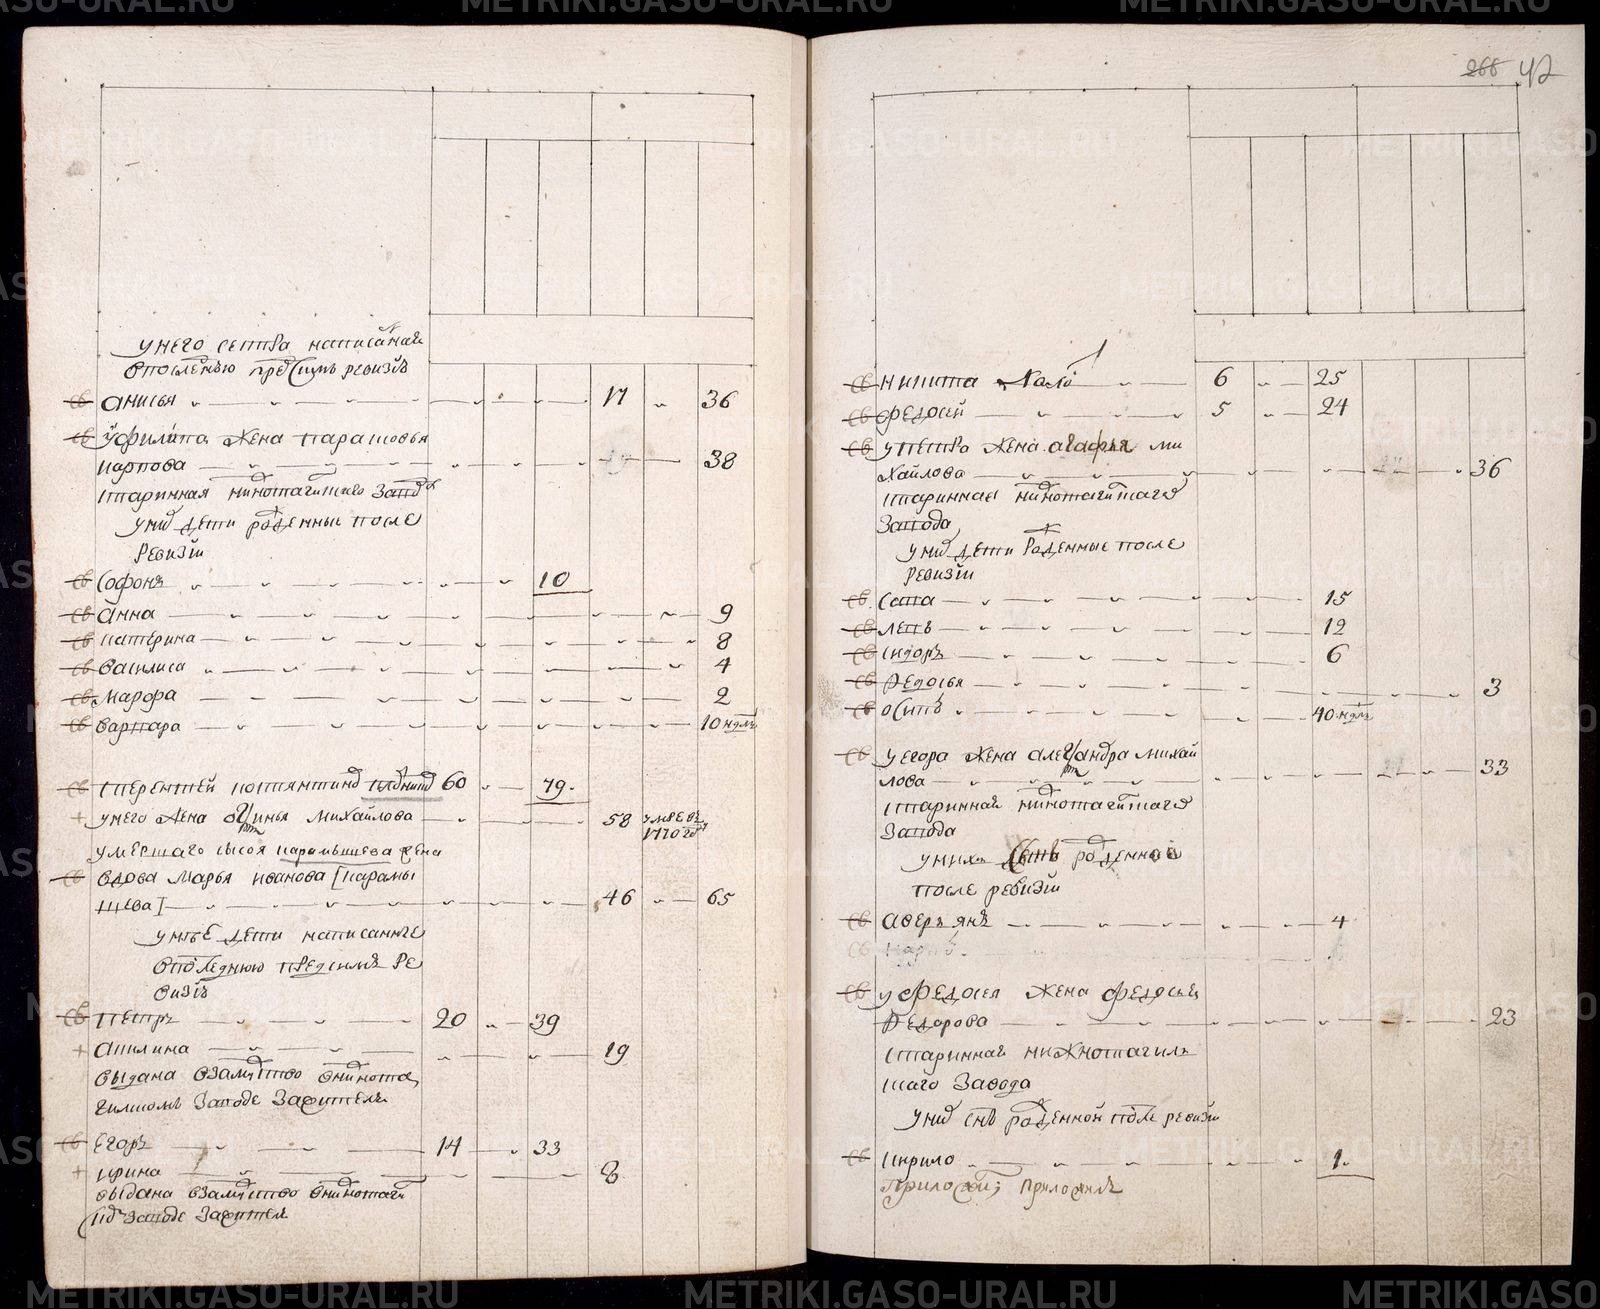 266 42
у него сестра написанная
в последнюю пред симъ ревизiю
св анисья 17 36
св у филипа жена парасковья
карпова 38
старинная нижнотагилского завода
у них дети рожденные после
ревизiи
св софонъ 10
св анна 9
св катерина 8
св василиса 4
св марфа 2
св варвара 10 недль
св терентей костянтинов 60 79
у него жена Михайлова 58 умре въ 1770 год
умершаго сысоя карамышева жена
св вдова марья иванова [карамы
шева] 46 65
у нее дети написанные
в последнюю пред симъ ре
визiю
св петръ 20 39
акилина 19
выдана взамужство в нижнота
гилскомъ заводе за жителя
св егоръ 14 33
ирина 8
выдана взамужство в нижнотаги
заводе за жителя
св никита 6 25
св федосей 5 24
св у петра жена агафья ми
хайлова 36
старинная нижнотагилского
завода
у них дети рожденные после
ревизiи
св сава 15
св левъ 12
св сидоръ 6
св федосья 3
св осипъ 40 недль
св у егора жена александра михай
лова 33
старинная нижнотагилского
завода
у них сынъ рожденной
после ревизiи
св аверьянъ 4
св у федосея жена федосья
федорова 23
старинная нижнотагил
скаго завода
у них снъ рожденной после ревизiи
св кирило 1
METRIKI.GASO-URAL.RU